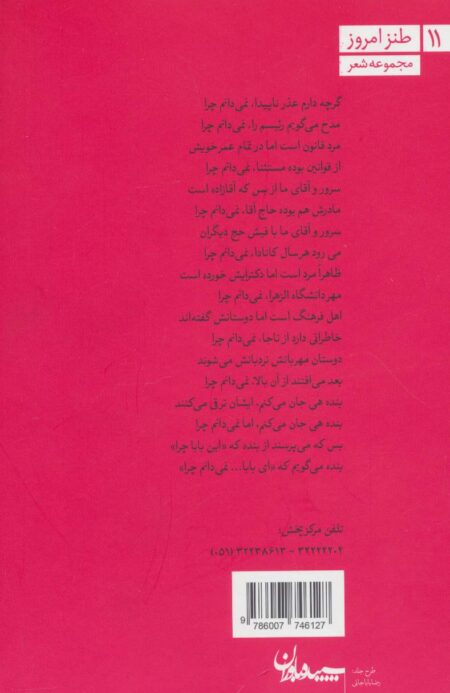 ۱۱
طنز امروز
مجموعه شعر
گرچه دارم عذر ناپیدا، نمی‌دانم چرا
مدح می‌گویم رئیسم را، نمی‌دانم چرا
مرد قانون است اما در تمام عمر خویش
از قوانین بوده مستثنا، نمی‌دانم چرا
سرور و آقای ما از بس که آقازاده است
مادرش هم بوده حاج آقا، نمی‌دانم چرا
سرور و آقای ما با فیش حج دیگران
می رود هر سال کانادا، نمی‌دانم چرا
ظاهراً مرد است اما دکترایش خورده است
مهر دانشگاه الزهرا، نمی‌دانم چرا
اهل فرهنگ است اما دوستانش گفته‌اند
خاطراتی دارد از تاجا، نمی‌دانم چرا
دوستان مهربانش نردبانش می‌شوند
بعد می‌افتند از آن بالا، نمی‌دانم چرا
بنده هی جان می‌کنم، ایشان ترقی می‌کنند
بنده هی جان می‌کنم، اما نمی‌دانم چرا
بس که می‌پرسند از بنده که «این بابا چرا»
بنده می‌گویم که «ای بابا... نمی‌دانم چرا»
تلفن مرکز پخش:
(۰۵۱) ۳۲۲۳۸۶۱۳ - ۳۲۲۲۲۲۰۴
9 786007 746127
سپیده باوران
طرح جلد:
رضا باباجانی